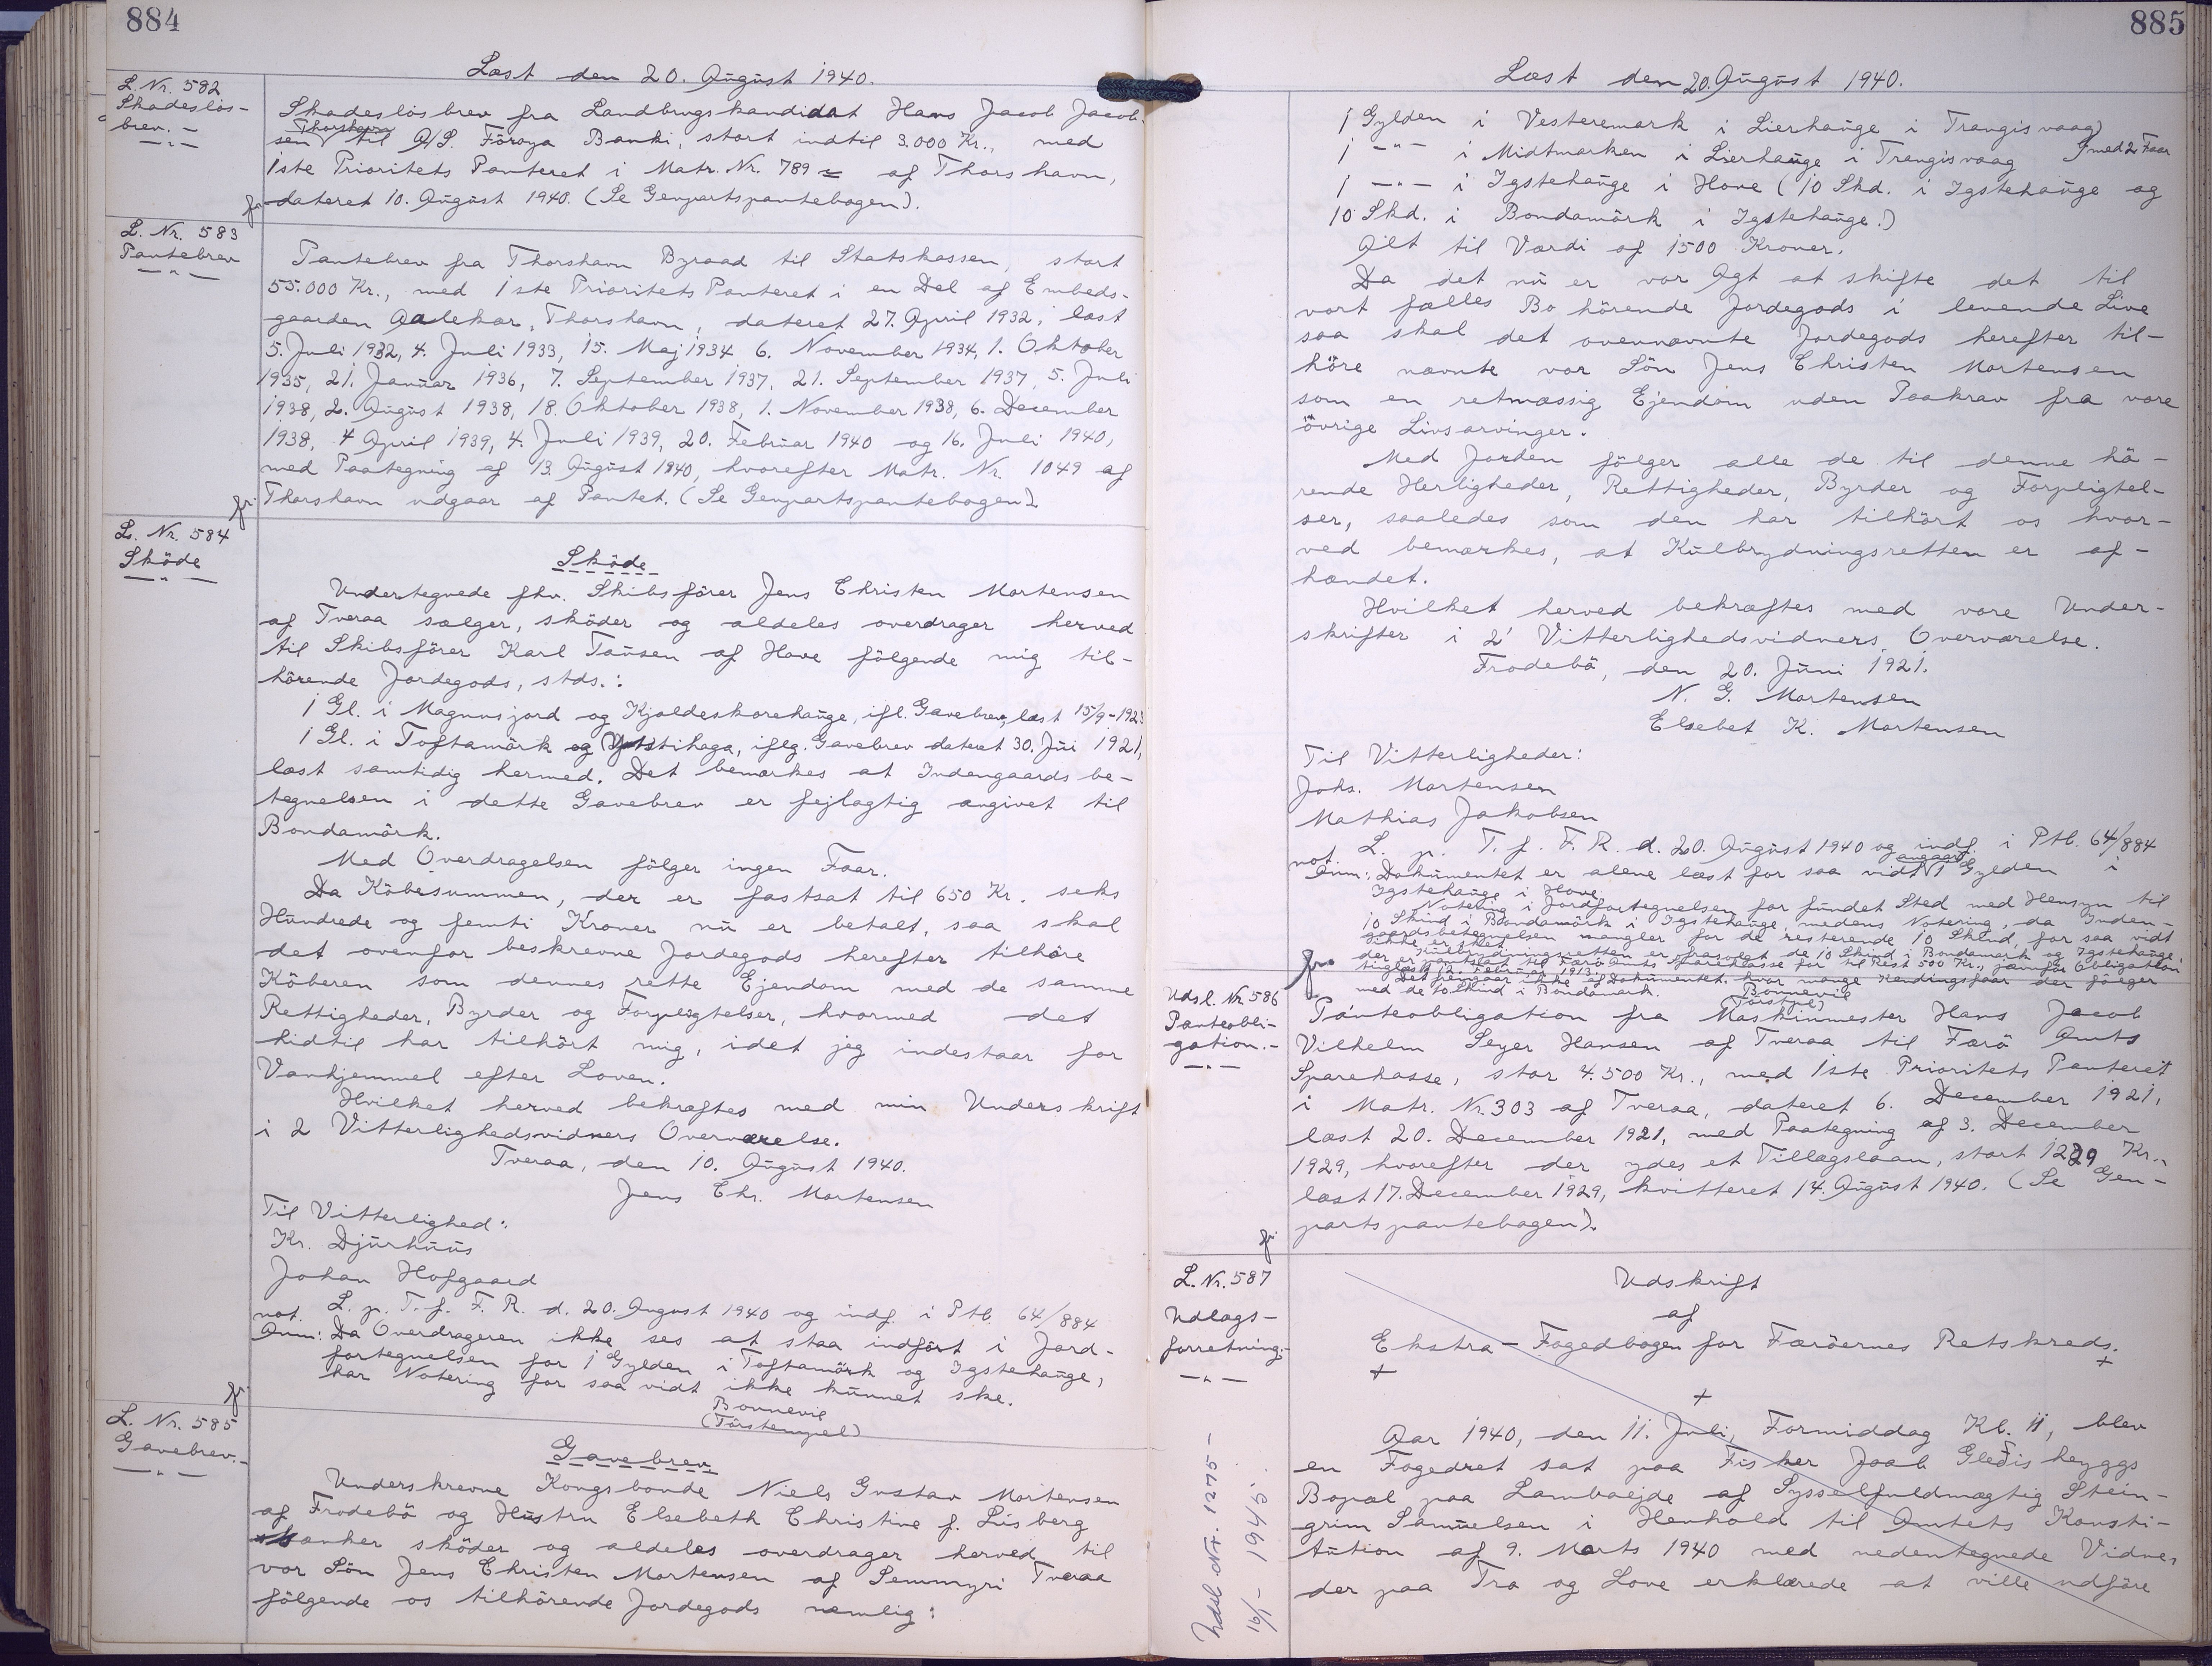 884
Læst den 20. August 1940.
L. Nr. 582
Skadeslös-
brev. -
Skadeslösbrev fra Landbrugskandidat Hans Jacob Jacob-
sen Thorshavn til A/S. Föroya Banki, stort indtil 3.000 Kr., med
1ste Prioritets Panteret i Matr. Nr. 789 af Thorshavn,
dateret 10. August 1940. (Se Genpartspantebogen).
L. Nr. 583
Pantebrev
Pantebrev fra Thorshavn Byraad til Statskassen, stort
55.000 Kr., med 1ste Prioritets Panteret i en Del af Embeds-
gaarden Aalekær, Thorshavn, dateret 27. April 1932, læst
5. Juli 1932, 4. Juli 1933, 15. Maj 1934 6. November 1934, 1. Oktober
1935, 21. Januar 1936, 7. September 1937, 21. September 1937, 5. Juli
1938, 2. August 1938, 18. Oktober 1938, 1. November 1938, 6. December
1938, 4 April 1939, 4. Juli 1939, 20. Februar 1940 og 16. Juli 1940,
med Paategning af 13. August 1940, hvorefter Matr. Nr. 1049 af
Thorshavn udgaar af Pantet. (Se Genpartspantebogen)
L. Nr. 584
Sköde
Sköde
Undertegnede fhv. Skibsförer Jens Christen Mortensen
af Tveraa sælger, sköder og aldeles overdrager herved
til Skibsförer Karl Tausen af Hove fölgende mig til-
hörende Jordegods, stds.:
1 Gl. i Magnusjord og Kjoldeskorehauge, ifl. Gavebrev, læst 15/9-1923
1 Gl. i Toftamörk og Ygstihaga, iflg. Gavebrev dateret 30. Jüi 1921,
læst samtidig hermed. Det bemærkes at Indengaards be-
tegnelsen i dette Gavebrev er fejlagtig angivet til
Bondamörk.
Med Overdragelsen fölger ingen Faar.
Da Köbesummen, der er fastsat til 650 Kr. seks
Hundrede og femti Kroner nu er betalt, saa skal
det ovenfor beskrevne Jordegods herefter tilhöre
Köberen som dennes rette Ejendom med de samme
Rettigheder, Byrder og Forpligtelser, hvormed det
hidtil har tilhört mig, idet jeg indestaar for
Vanhjemmel efter Loven.
Hvilket herved bekræftes med min Underskrift
i 2 Vitterlighedsvidners Overværelse.
Tveraa, den 10. August 1940.
Jens Chr. Mortensen
Til Vitterlighed:
Kr. Djurhuus
Johan Hofgaard
not. L. p. T. f. F. R. d. 20. August 1940 og indf. i Ptb. 64/884
Anm: Da Overdrageren ikke ses at staa indfört i Jord-
fortegnelsen for 1 Gylden i Toftamörk og Igstehauge,
har Notering for saa vidt ikke kunnet ske.
Bonnevie
(Törstempel)
L. Nr. 585
Gavebrev.
Gavebrev
Underskrevne Kongsbonde Niels Gustav Mortensen
af Frodebö og Hustru Elsebeth Christine f. Lisberg
skænker sköder og aldeles overdrager herved til
vor Sön Jens Christen Mortensen af Semmyri Tveraa
fölgende os tilhörende Jordegods nemlig:
885
Læst den 20. August 1940.
1 Gylden i Vesteremark i Lierhauge i Trangisvaag)
1 -"- i Midtmarken i Lierhauge i Trangisvaag } med 2 Faar
1 -"- i Igstehauge i Hove (10 Skd. i Igstehauge og
10 Skd. i Bondamörk i Igstehauge.)
Alt til Værdi af 1500 Kroner.
Da det nu er vor Agt at skifte det til
vort fælles Bo hörende Jordegods i levende Live
saa skal det ovennævnte Jordegods herefter til-
höre nævnte vor Sön Jens Christen Mortensen
som en retmæssig Ejendom uden Paakrav fra vore
övrige Livsarvinger.
Med Jorden fölger alle de til denne hö-
rende Herligheder, Rettigheder, Byrder og Forpligtel-
ser, saaledes som den har tilhört os hvor-
ved bemærkes, at Kulbrydningsretten er af-
hændet.
Hvilket herved bekræftes med vore Under-
skrifter i 2 Vitterlighedsvidners Overværelse.
Frodebö, den 20. Juni 1921.
N. G. Mortensen
Elsebet K. Mortensen
Til Vitterligheder:
Johs. Mortensen
Mathias Jakobsen
not. L. p. T. f. F. R. d. 20. August 1940 og indf. i Ptb. 64/884
Anm: Dokumentet er alene læst for saa vidt angaar 1 Gylden i
Igstehauge i Hove.
Notering i Jordfortegnelsen har fundet Sted med Hensyn til
10 Skind i Bondamörk i Igstehauge, medens Notering, da Inden-
gaardsbetegnelsen mangler for de resterende 10 Skind, for saa vidt
ikke er sket.
Kulbrydningsretten er frasolgt de 10 Skind i Bondamörk og Igstehauge,
der er pantsat til Færö Amts Sparekasse for til Rest 500 Kr., jævnför Obligation
tinglæst 12. Februar 1913.
Det fremgaar ikke af Dokumentet, hvor mange Kendingsfaar der fölger
med de 10 Skind i Bondamörk.
Bonnevie
(Törstpl)
Udsl. Nr. 586
Panteobli-
gation.-
Panteobligation fra Maskinmester Hans Jacob
Vilhelm Seyer Hansen af Tveraa til Færö Amts
Sparekasse, stor 4.500 Kr., med 1ste Prioritets Panteret
i Matr. Nr. 303 af Tveraa, dateret 6. December 1921,
læst 20. December 1921, med Paategning af 3. December
1929, hvorefter der ydes et Tillægslaan, stort 1229 Kr.,
læst 17. December 1929, kvitteret 14. August 1940. (Se Gen-
partspantebogen).
L. Nr. 587
Udlægs-
forretning.-
Udskrift
af
Ekstra - Fogedbogen for Færöernes Retskreds.
Aar 1940, den 11. Juli, Formiddag Kl. 11, blev
en Fogedret sat paa Fisker Joab Gledisheyggs
Bopæl paa Lambaejde af Sysselfuldmægtig Stein-
grim Samuelsen i Henhold til Amtets Konsti-
tution af 9. Marts 1940 med nedentegnede Vidner
der paa Tro og Love erklærede at ville udföre
Udsl. Nr. 1275 -
16/1 - 1945.